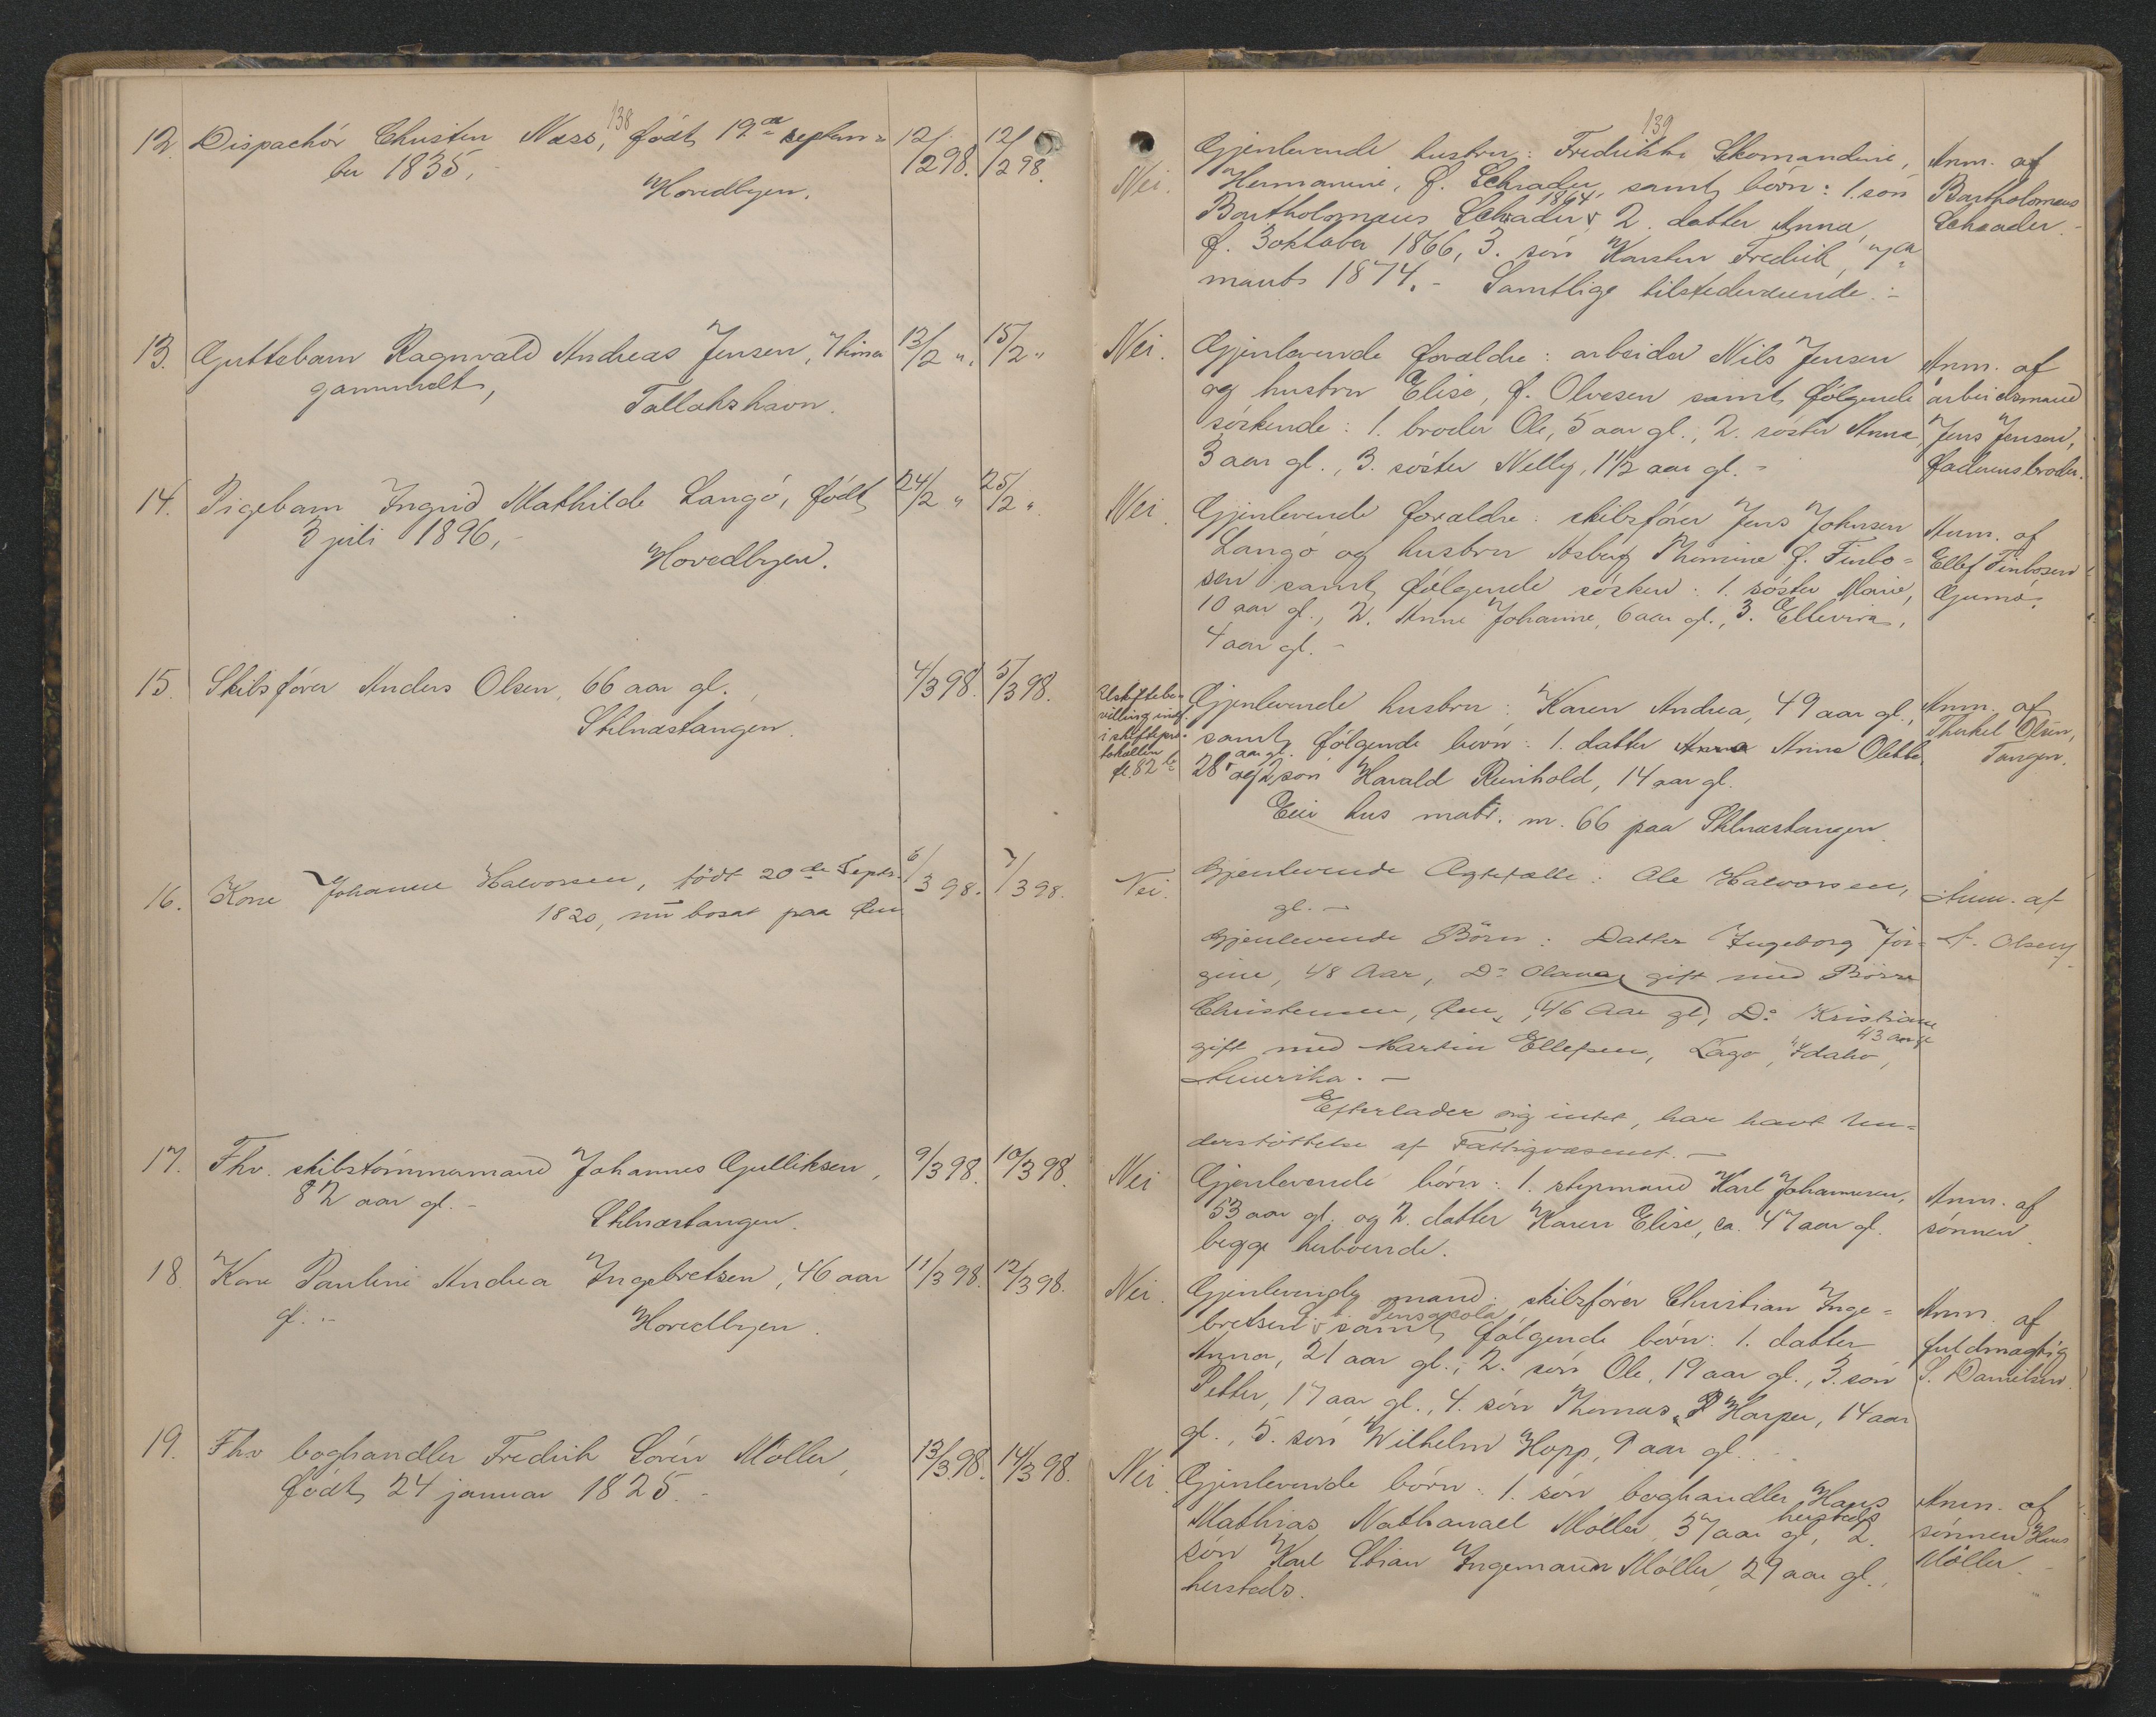 138
12. Dispachör Christen Næss, födt 19de septem=
ber 1835,
Hovedbyen.
12/2 98. 12/2 98.
13. Guttebarn Ragnvald Andreas Jensen, 7 timer
gammelt,
Tallakshavn.
13/2 ". 15/2 "
14. Pigebarn Ingrid Mathilde Langö, födt
3 juli 1896,
Hovedbyen.
24/2 " 25/2 ".
15. Skibsförer Anders Olsen, 66 aar gl.,
Stilnæstangen.
4/3 98. 5/3 98.
16. Kone Johanne Halvorsen, födt 20de Septr.
1820, nu bosat paa Öen
6/3 98. 7/3 98.
17. Fhv. skibstömmermand Johannes Gulliksen,
82 aar gl. -
Stilnæstangen.
9/3 98. 10/3 98.
18. Kone Pauline Andrea Ingebretsen, 46 aar
gl. -
Hovedbyen.
11/3 98. 12/3 98.
19. Fhv boghandler Fredrik Sören Möller,
födt 24 januar 1825. -
13/3 98. 14/3 98.
139
Nei.
Gjenlevende hustru: Fredrikke
Hermanine, f. Schrader, samt börn: 1. sön
Bartholomæus Schrader 1864, 2. datter Anna,
f. 3 oktober 1866, 3. sön Karsten Fredrik,
marts 1874. - Samtlige tilstedeværende. -
Anm. af
Bartholomæus
Schrader. -
Nei.
Gjenlevende forældre: arbeider Nils Jensen
og hustru Elise, f. Olvesen samt fölgende
söskende: 1. broder Ole, 5 aar gl., 2. söster Anna,
3 aar gl., 3. söster Nelly, 1 1/2 aar gl. -
Anm. af
arbeidsmand
Jens Jensen,
faderens broder.
Nei.
Gjenlevende forældre: skibsförer Jens Johnsen
Langö og hustru Asbörg Thomine f. Finbo=
sen samt fölgende sösken: 1. söster Marie,
10 aar gl., 2. Anne Johanne, 6 aar gl., 3. Ellevine,
4 aar gl. -
Anm. af
Ellef Finbosen
Gumö.
Uskiftebe=
villing indf.
i skiftepro=
tokollen
fl. 82
Gjenlevende hustru: Karen Andrea, 49 aar gl.,
samt fölgende börn: 1. datter Anna Anne Olette,
28 aar gl. og 2 sön Harald Reinhold, 14 aar gl.
Eier hus matr. nr. 66 paa Stilnæstangen.
Anm. af
Therkel Olsen,
Tangen.
Nei.
Gjenlevende Ægtefælle: Ole Halvorsen,
gl. -
Gjenlevende Börn: Datter Ingeborg Jör=
gine, 48 Aar, Do Olava gift med Börre
Christensen, Öen, 46 Aar gl, Do Kristiane
43 Aar gl
gift med Martin Ellefsen, Lago, Idaho,
Amerika. -
Efterlader sig intet, har havt Un=
derstöttelse af Fattigvæsenet. -
Anm. af
A. Olsen
Nei
Gjenlevende börn: 1. styrmand Karl Johannesen,
53 aar gl. og 2. datter Karen Elise, ca. 47 aar gl.
begge herboende.
Anm. af
sönnen.
Nei.
Gjenlevende mand: skibsförer Christian Inge=
bretsen p. t. Pensacola samt fölgende börn: 1. datter
Anna, 21 aar gl., 2. sön Ole, 19 aar gl., 3. sön
Petter, 17 aar gl., 4. sön Thomas P Harper, 14 aar
gl., 5. sön Wilhelm Hopp, 9 aar gl. -
Anm. af
fuldmægtig
S. Danielsen.
Nei.
Gjenlevende börn: 1. sön boghandler Hans
Mathias Nathanael Möller 37 aar gl, hersteds 2.
sön Karl Stian Ingemann Möller, 29 aar gl.,
hersteds.
Anm. af
sönnen Hans
Möller. -